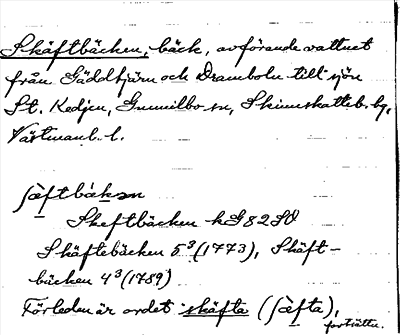 Skäftbäcken, bäck, avförande vattnet
från Gäddtjärn och Dramboln till sjön
St. Kedjen, Gunnilbo sn, Skinnskatteb. hg,
Västmanl. l.
ʃæftbäkən
Skeftbäcken hG82SO
Skäftebäcken 5³(1773), Skäft-
bäcken 4³(1789)
Förleden är ordet skäfta (ʃæfta),
fortsättn.